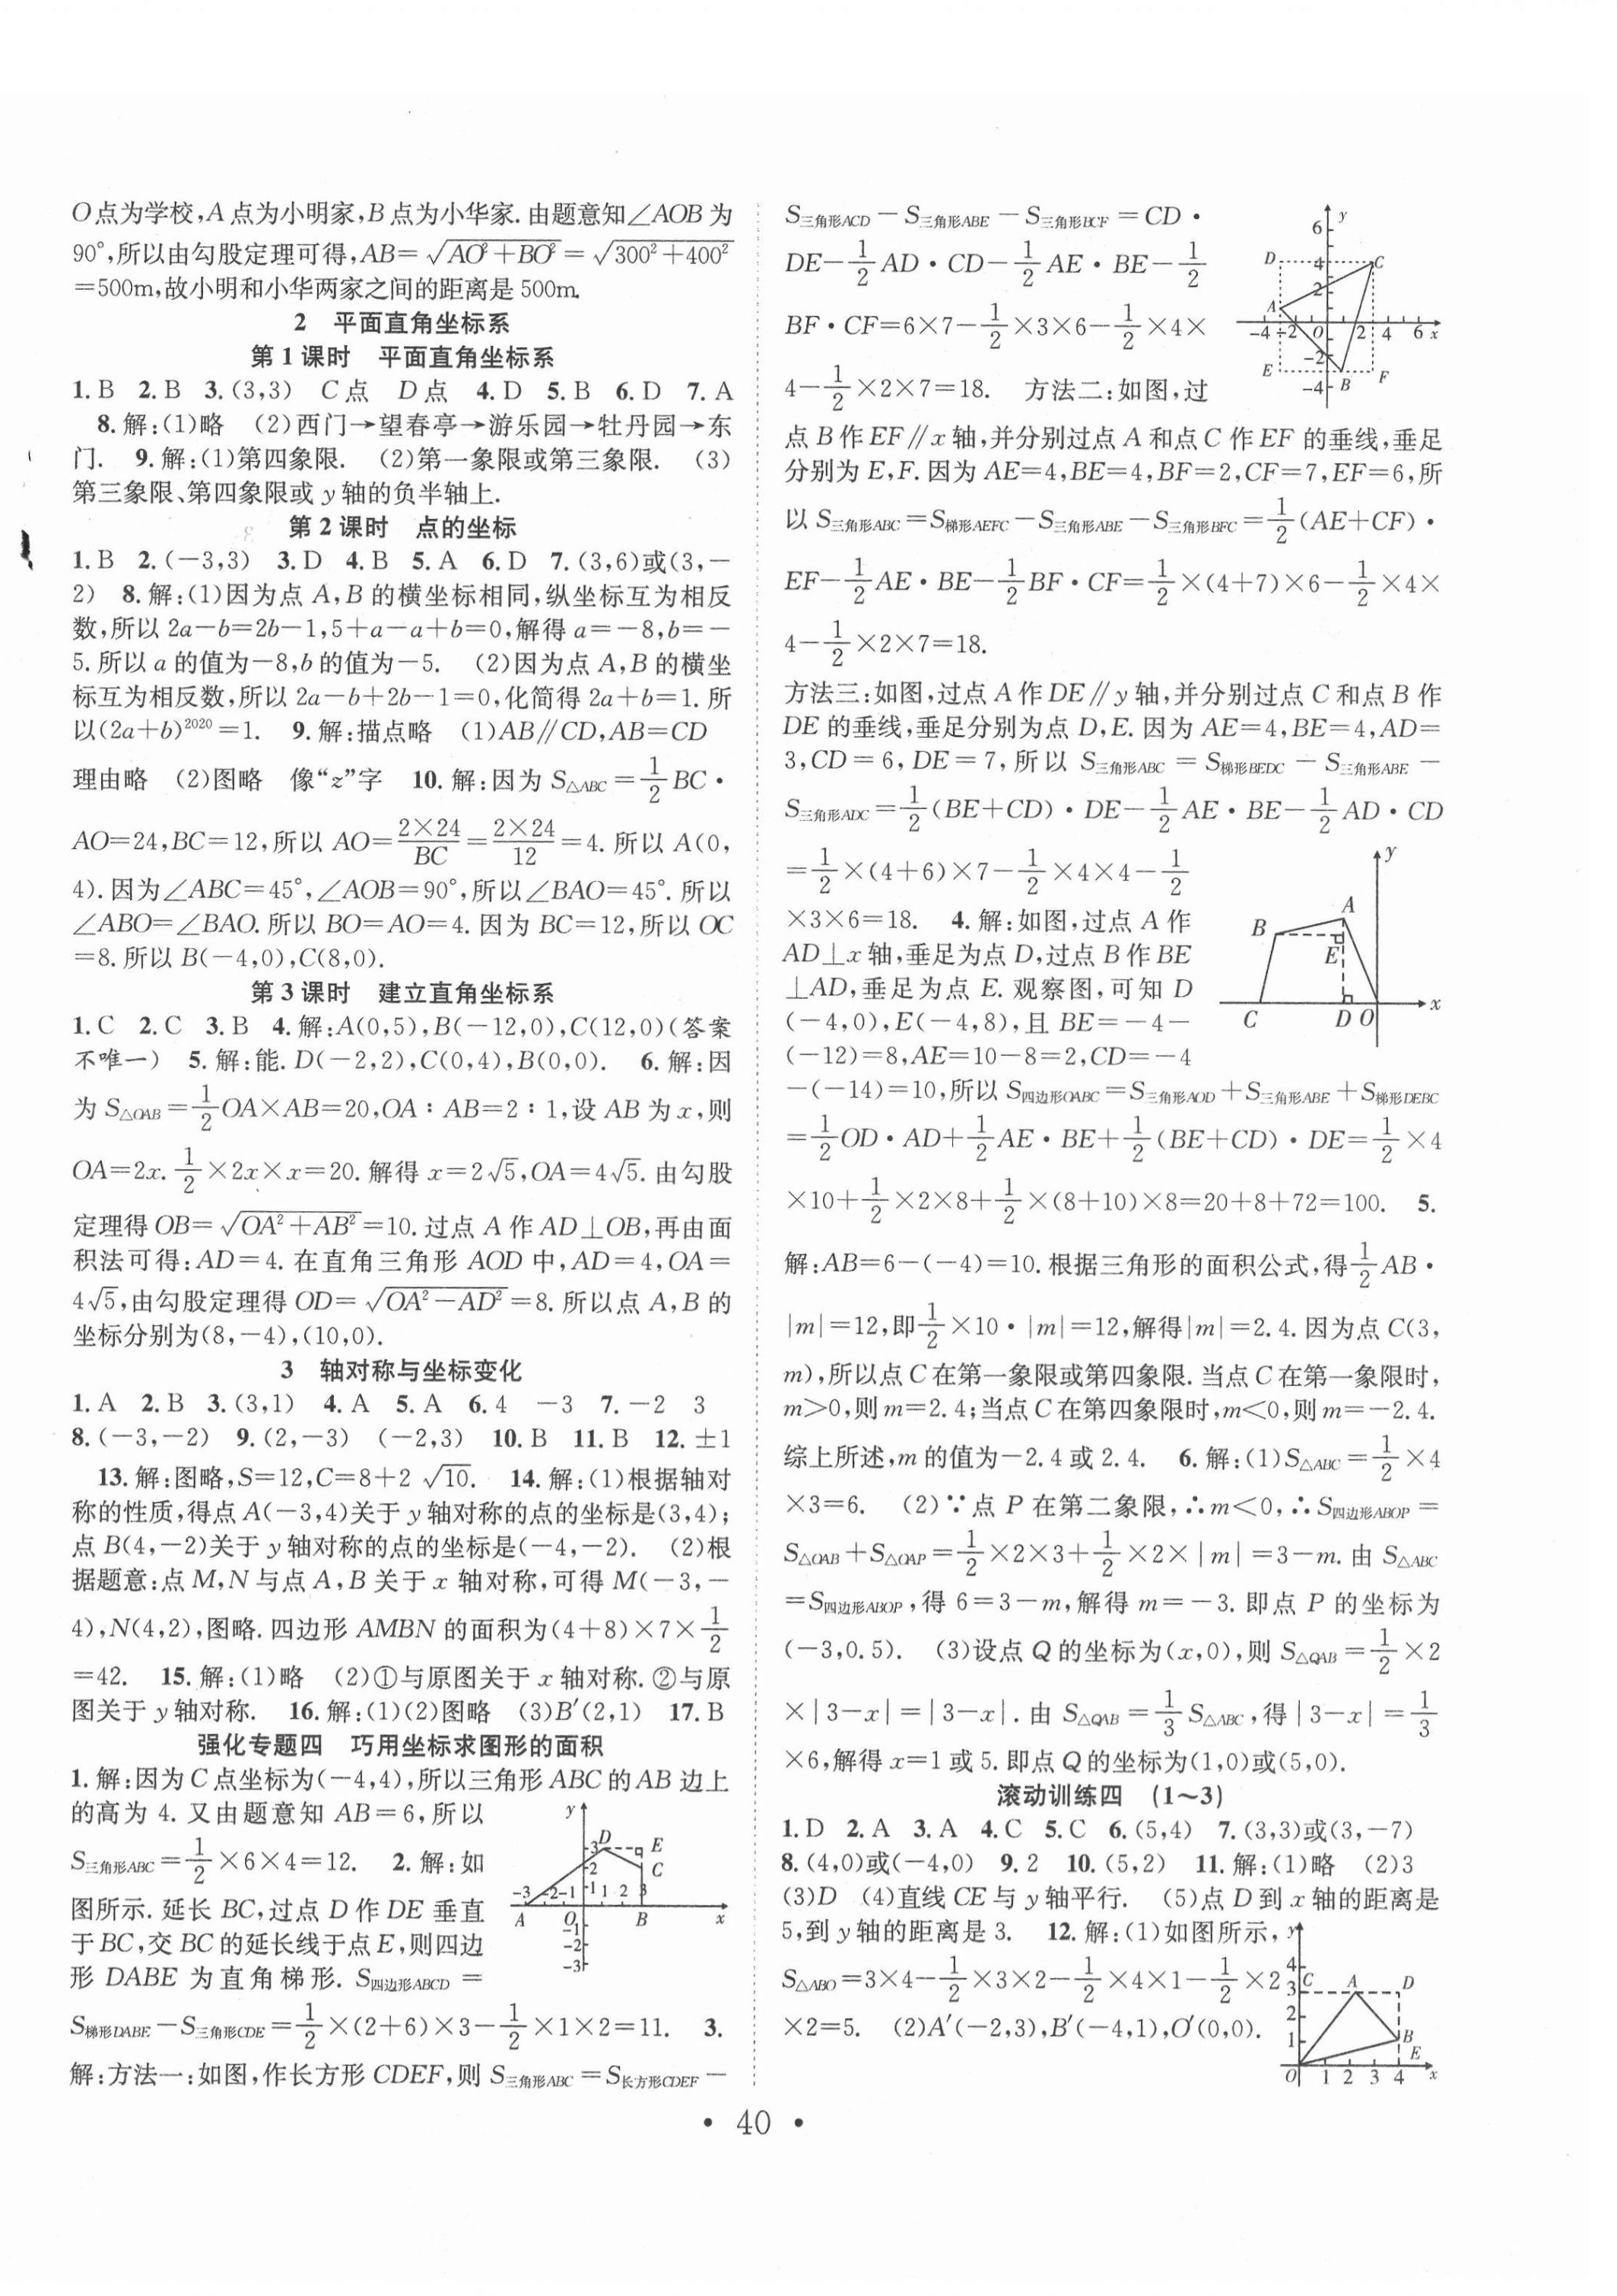 O点为学校,A点为小明家,B点为小华家.由题意知∠AOB为
90°,所以由勾股定理可得,AB=√(AO²+BO²)=√(300²+400²)
=500m,故小明和小华两家之间的距离是500m.
2 平面直角坐标系
第1课时 平面直角坐标系
1.B 2.B 3.(3,3) C点 D点 4.D 5.B 6.D 7.A
8.解:(1)略 (2)西门→望春亭→游乐园→牡丹园→东
门. 9.解:(1)第四象限. (2)第一象限或第三象限. (3)
第三象限、第四象限或y轴的负半轴上.
第2课时 点的坐标
1.B 2.(-3,3) 3.D 4.B 5.A 6.D 7.(3,6)或(3,-
2) 8.解:(1)因为点A,B的横坐标相同,纵坐标互为相反
数,所以2a-b=2b-1,5+a-a+b=0,解得a=-8,b=-
5.所以a的值为-8,b的值为-5. (2)因为点A,B的横坐
标互为相反数,所以2a-b+2b-1=0,化简得2a+b=1.所
以(2a+b)²⁰²⁰=1. 9.解:描点略 (1)AB∥CD,AB=CD
理由略 (2)图略 像“z”字 10.解:因为S△ABC=1/2BC·
AO=24,BC=12,所以AO=(2×24)/BC=(2×24)/12=4.所以A(0,
4).因为∠ABC=45°,∠AOB=90°,所以∠BAO=45°.所以
∠ABO=∠BAO.所以BO=AO=4.因为BC=12,所以OC
=8.所以B(-4,0),C(8,0).
第3课时 建立直角坐标系
1.C 2.C 3.B 4.解:A(0,5),B(-12,0),C(12,0)(答案
不唯一) 5.解:能.D(-2,2),C(0,4),B(0,0). 6.解:因
为S△OAB=1/2OA×AB=20,OA∶AB=2∶1,设AB为x,则
OA=2x.1/2×2x×x=20.解得x=2√5,OA=4√5.由勾股
定理得OB=√(OA²+AB²)=10.过点A作AD⊥OB,再由面
积法可得:AD=4.在直角三角形AOD中,AD=4,OA=
4√5,由勾股定理得OD=√(OA²-AD²)=8.所以点A,B的
坐标分别为(8,-4),(10,0).
3 轴对称与坐标变化
1.A 2.B 3.(3,1) 4.A 5.A 6.4 -3 7.-2 3
8.(-3,-2) 9.(2,-3) (-2,3) 10.B 11.B 12.±1
13.解:图略,S=12,C=8+2√10. 14.解:(1)根据轴对
称的性质,得点A(-3,4)关于y轴对称的点的坐标是(3,4);
点B(4,-2)关于y轴对称的点的坐标是(-4,-2). (2)根
据题意:点M,N与点A,B关于x轴对称,可得M(-3,-
4),N(4,2),图略.四边形AMBN的面积为(4+8)×7×1/2
=42. 15.解:(1)略 (2)①与原图关于x轴对称.②与原
图关于y轴对称. 16.解:(1)(2)图略 (3)B′(2,1) 17.B
强化专题四 巧用坐标求图形的面积
1.解:因为C点坐标为(-4,4),所以三角形ABC的AB边上
的高为4.又由题意知AB=6,所以
S三角形ABC=1/2×6×4=12. 2.解:如
图所示.延长BC,过点D作DE垂直
于BC,交BC的延长线于点E,则四边
形DABE为直角梯形.S四边形ABCD=
y
3 D E
2 C
-3 -2 -1 1 1 2 3
A O B x
-1
-2
-3
S梯形DABE-S三角形CDE=1/2×(2+6)×3-1/2×1×2=11. 3.
解:方法一:如图,作长方形CDEF,则S三角形ABC=S长方形CDEF-
S三角形ACD-S三角形ABE-S三角形BCF=CD·
DE-1/2AD·CD-1/2AE·BE-1/2
BF·CF=6×7-1/2×3×6-1/2×4×
4-1/2×2×7=18. 方法二:如图,过
6 y
D 4 C
A 2
-4 -2 O 2 4 6 x
E -2 F
-4 B
点B作EF∥x轴,并分别过点A和点C作EF的垂线,垂足
分别为E,F.因为AE=4,BE=4,BF=2,CF=7,EF=6,所
以S三角形ABC=S梯形AEFC-S三角形ABE-S三角形BFC=1/2(AE+CF)·
EF-1/2AE·BE-1/2BF·CF=1/2×(4+7)×6-1/2×4×
4-1/2×2×7=18.
方法三:如图,过点A作DE∥y轴,并分别过点C和点B作
DE的垂线,垂足分别为点D,E.因为AE=4,BE=4,AD=
3,CD=6,DE=7,所以S三角形ABC=S梯形BEDC-S三角形ABE-
S三角形ADC=1/2(BE+CD)·DE-1/2AE·BE-1/2AD·CD
=1/2×(4+6)×7-1/2×4×4-1/2
×3×6=18. 4.解:如图,过点A作
AD⊥x轴,垂足为点D,过点B作BE
⊥AD,垂足为点E.观察图,可知D
(-4,0),E(-4,8),且BE=-4-
(-12)=8,AE=10-8=2,CD=-4
y
A
B
E
C D O x
-(-14)=10,所以S四边形OABC=S三角形AOD+S三角形ABE+S梯形DEBC
=1/2OD·AD+1/2AE·BE+1/2(BE+CD)·DE=1/2×4
×10+1/2×2×8+1/2×(8+10)×8=20+8+72=100. 5.
解:AB=6-(-4)=10.根据三角形的面积公式,得1/2AB·
|m|=12,即1/2×10·|m|=12,解得|m|=2.4.因为点C(3,
m),所以点C在第一象限或第四象限.当点C在第一象限时,
m>0,则m=2.4;当点C在第四象限时,m<0,则m=-2.4.
综上所述,m的值为-2.4或2.4. 6.解:(1)S△ABC=1/2×4
×3=6. (2)∵点P在第二象限,∴m<0,∴S四边形ABOP=
S△OAB+S△OAP=1/2×2×3+1/2×2×|m|=3-m.由S△ABC
=S四边形ABOP,得6=3-m,解得m=-3.即点P的坐标为
(-3,0.5). (3)设点Q的坐标为(x,0),则S△QAB=1/2×2
×|3-x|=|3-x|.由S△QAB=1/3S△ABC,得|3-x|=1/3
×6,解得x=1或5.即点Q的坐标为(1,0)或(5,0).
滚动训练四 (1~3)
1.D 2.A 3.A 4.C 5.C 6.(5,4) 7.(3,3)或(3,-7)
8.(4,0)或(-4,0) 9.2 10.(5,2) 11.解:(1)略 (2)3
(3)D (4)直线CE与y轴平行. (5)点D到x轴的距离是
5,到y轴的距离是3. 12.解:(1)如图所示,
S△ABO=3×4-1/2×3×2-1/2×4×1-1/2×2
×2=5. (2)A′(-2,3),B′(-4,1),O′(0,0).
y
4
3 C A D
2
1 B
E
O 1 2 3 4 x
· 40 ·